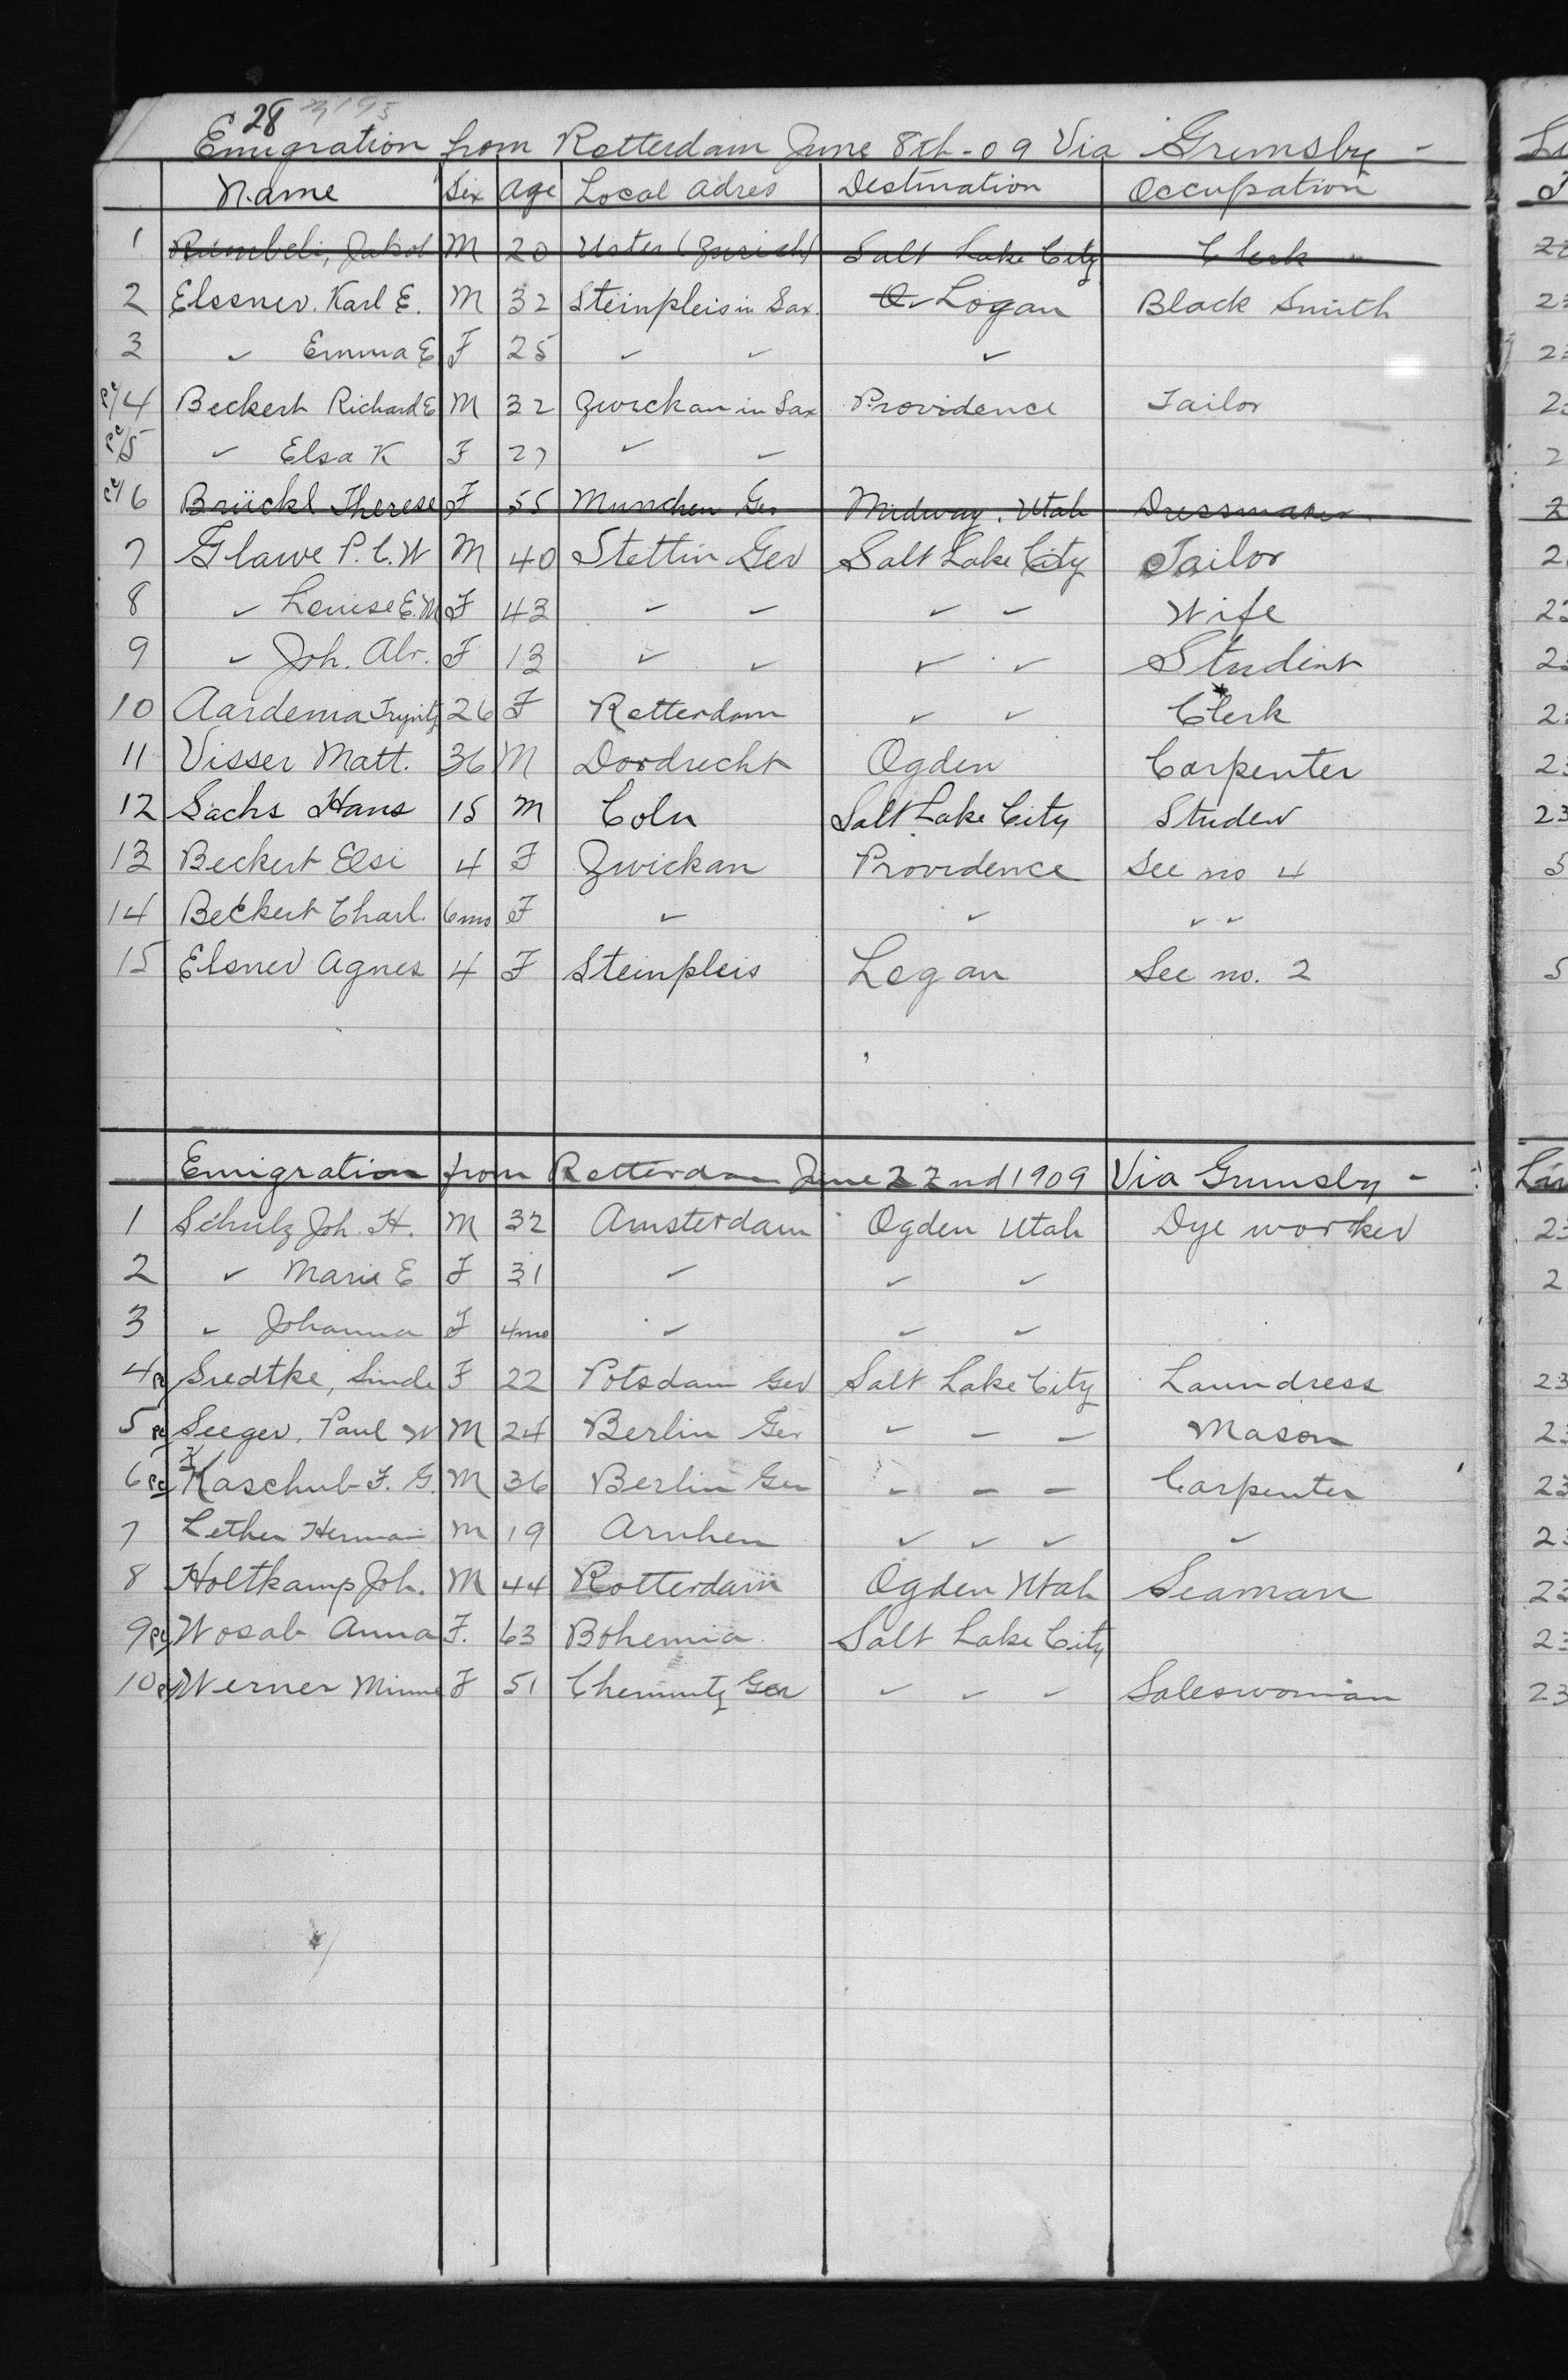 28
Emigration from Rotterdam June 8th - 09 Via Grimsby -
Name Sex Age Local Adres Destination Occupation
1 Rümbeli, Jakob M 20 Uster (Zurich) Salt Lake City Clerk
2 Elssner. Karl E. M 32 Steinpleis in Sax. Logan Black Smith
3 ✓ Emma E F 25 ✓ ✓ ✓
4 Beckert Richard E M 32 Zwickau in Sax Providence Tailor
5 ✓ Elsa K F 27 ✓ ✓
6 Brückl Therese F 55 Munchen Ger Midway. Utah Dressmaker
7 Glawe P. C. W M 40 Stettin Ger Salt Lake City Tailor
8 ✓ Louise E. M F 43 ✓ ✓ ✓ ✓ Wife
9 ✓ Joh. Alr. F 13 ✓ ✓ ✓ ✓ Student
10 Aardema 26 F Rotterdam ✓ ✓ Clerk
11 Visser Matt. 36 M Dordrecht Ogden Carpenter
12 Sachs Hans 15 M Coln Salt Lake City Studen
13 Beckert Elsi 4 F Zwickau Providence See no 4
14 Beckert Charl. 6mo F ✓ ✓ ✓ ✓
15 Elsner Agnes 4 F Steinpleis Logan See no. 2
Emigration from Rotterdam June 22nd 1909 Via Grimsby -
1 Schulz Joh. H. M 32 Amsterdam Ogden Utah Dye worker
2 ✓ Marie E F 31 ✓ ✓ ✓
3 ✓ Johanna F 4mo ✓ ✓ ✓
4 Sredtke, Linde F 22 Potsdam Ger Salt Lake City Laundress
5 Seeger, Paul W M 24 Berlin Ger - - - Mason
6 Kaschub F. G. M 36 Berlin Ger - - - Carpenter
7 Lether Herman M 19 Arnhem ✓ ✓ ✓ ✓
8 Holtkamp Joh. M 44 Rotterdam Ogden Utah Seaman
9 Wosab Anna F. 63 Bohemia Salt Lake City
10 Werner Minna F 51 Chemnitz Ger ✓ ✓ ✓ Saleswoman